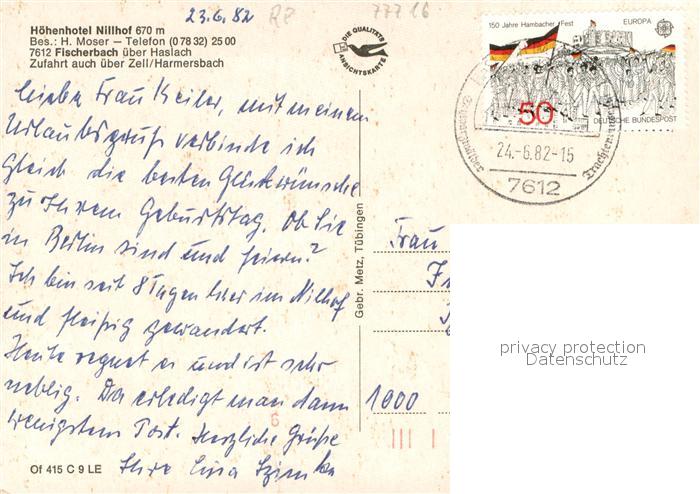 23.6.82
R8
777 16
Höhenhotel Nillhof 670 m
Bes.: H. Moser — Telefon (0 78 32) 25 00
7612 Fischerbach über Haslach
Zufahrt auch über Zell/Harmersbach
DIE QUALITÄTS
ANSICHTSKARTE
150 Jahre Hambacher Fest
EUROPA
50
DEUTSCHE BUNDESPOST
24.-6.82-15
7612
Liebe Frau Keiler, mit meinem
Urlaubsgruß verbinde ich
gleich die besten Glückwünsche
zu Ihrem Geburtstag. Ob Sie
in Berlin sind und feiern?
Ich bin seit 8 Tagen hier im Nillhof
und fleißig gewandert.
Heute regnet es und ist sehr
neblig. Da erledigt man dann
wenigstens Post. Herzliche Grüße
Ihre
Gebr. Metz, Tübingen
Frau
1000
privacy protection
Datenschutz
Of 415 C 9 LE